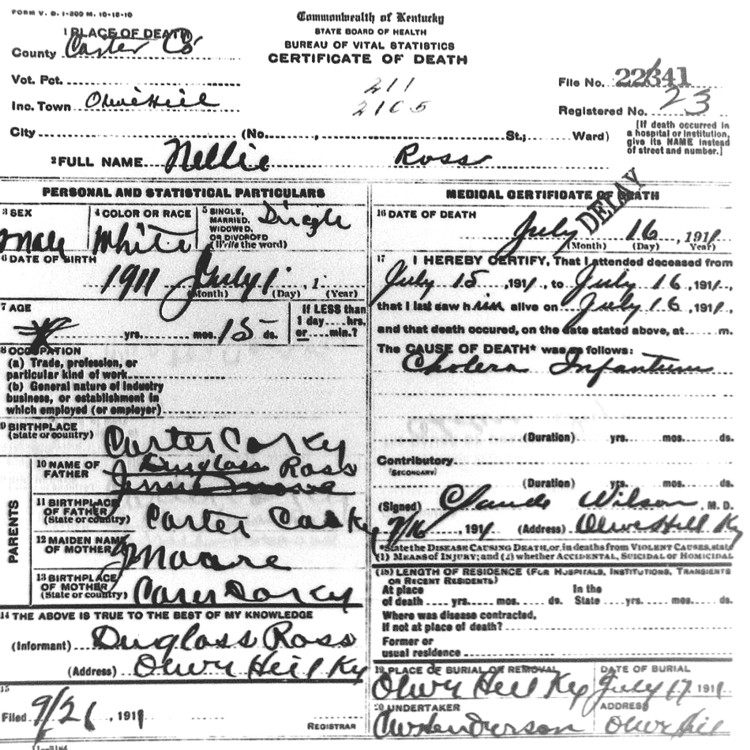 FORM V. S. 1-200 M. 10-18-10
Commonwealth of Kentucky
STATE BOARD OF HEALTH
BUREAU OF VITAL STATISTICS
CERTIFICATE OF DEATH
1 PLACE OF DEATH
County Carter Co
Vot. Pct.
211
File No. 22641
Inc. Town Olive Hill
2105
Registered No. 23
City (No. , St.; Ward)
[If death occurred in a hospital or institution, give its NAME instead of street and number.]
2 FULL NAME Nellie Ross
PERSONAL AND STATISTICAL PARTICULARS
3 SEX
male
4 COLOR OR RACE
White
5 SINGLE, MARRIED, WIDOWED, OR DIVORCED (Write the word)
Single
6 DATE OF BIRTH
1911 July 1
(Month) (Day) (Year)
7 AGE
yrs. mos. 15 ds.
If LESS than 1 day hrs. or min.?
8 OCCUPATION
(a) Trade, profession, or particular kind of work
(b) General nature of industry business, or establishment in which employed (or employer)
9 BIRTHPLACE
(State or country)
Carter Co Ky
PARENTS
10 NAME OF FATHER
Duglass Ross
11 BIRTHPLACE OF FATHER
(State or country)
Carter Co Ky
12 MAIDEN NAME OF MOTHER
J Moore
13 BIRTHPLACE OF MOTHER
(State or country)
Ky
14 THE ABOVE IS TRUE TO THE BEST OF MY KNOWLEDGE
(Informant) Duglass Ross
(Address) Olive Hill Ky
15
Filed 9/26, 1911
REGISTRAR
11-3184
MEDICAL CERTIFICATE OF DEATH
DELAY
16 DATE OF DEATH
July 16, 1911
(Month) (Day) (Year)
17 I HEREBY CERTIFY, That I attended deceased from
July 15 1911, to July 16, 1911,
that I last saw him alive on July 16, 1911,
and that death occured, on the date stated above, at m.
The CAUSE OF DEATH* was as follows:
Cholera Infantum
(Duration) yrs. mos. ds.
Contributory
(SECONDARY)
(Duration) yrs. mos. ds.
(Signed) Claude Wilson, M. D.
7/16, 1911 (Address) Olive Hill Ky
*State the DISEASE CAUSING DEATH, or, in deaths from VIOLENT CAUSES, state
(1) MEANS OF INJURY; and (2) whether ACCIDENTAL, SUICIDAL OR HOMICIDAL
(18) LENGTH OF RESIDENCE (FOR HOSPITALS, INSTITUTIONS, TRANSIENTS
OR RECENT RESIDENTS)
At place of death yrs. mos. ds. In the State yrs. mos. ds.
Where was disease contracted,
If not at place of death?
Former or
usual residence
19 PLACE OF BURIAL OR REMOVAL
Olive Hill Ky
DATE OF BURIAL
July 17 1911
20 UNDERTAKER
ADDRESS
Olive Hill